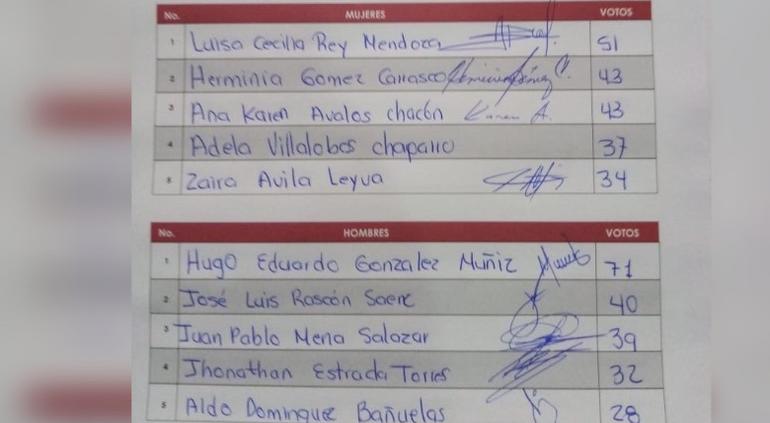 No. MUJERES VOTOS
1 Luisa Cecilia Rey Mendoza 51
2 Herminia Gomez Carrasco 43
3 Ana Karen Avalos chacón 43
4 Adela Villalobos chaparro 37
5 Zaira Avila Leyva 34
No. HOMBRES VOTOS
1 Hugo Eduardo Gonzalez Muñiz 71
2 José Luis Rascón Saenz 40
3 Juan Pablo Mena Salazar 39
4 Jhonathan Estrada Torres 32
5 Aldo Dominguez Bañuelos 28